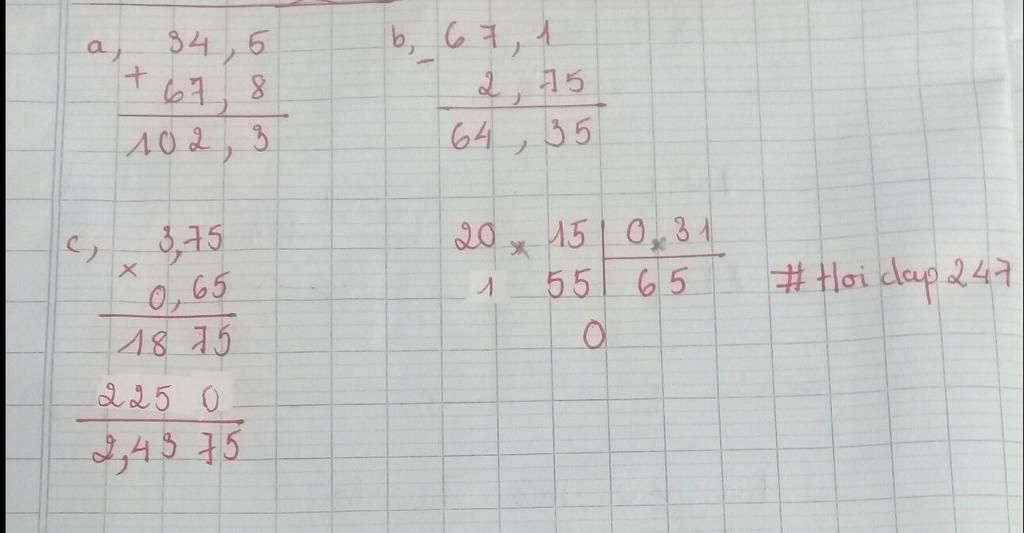 a, 34,5
+ 67,8
102,3
b, - 67,1
2,75
64,35
c, 3,75
× 0,65
1875
2250
2,4375
20×15 | 0×31
1 55 | 65
0
# Hoi dap 247